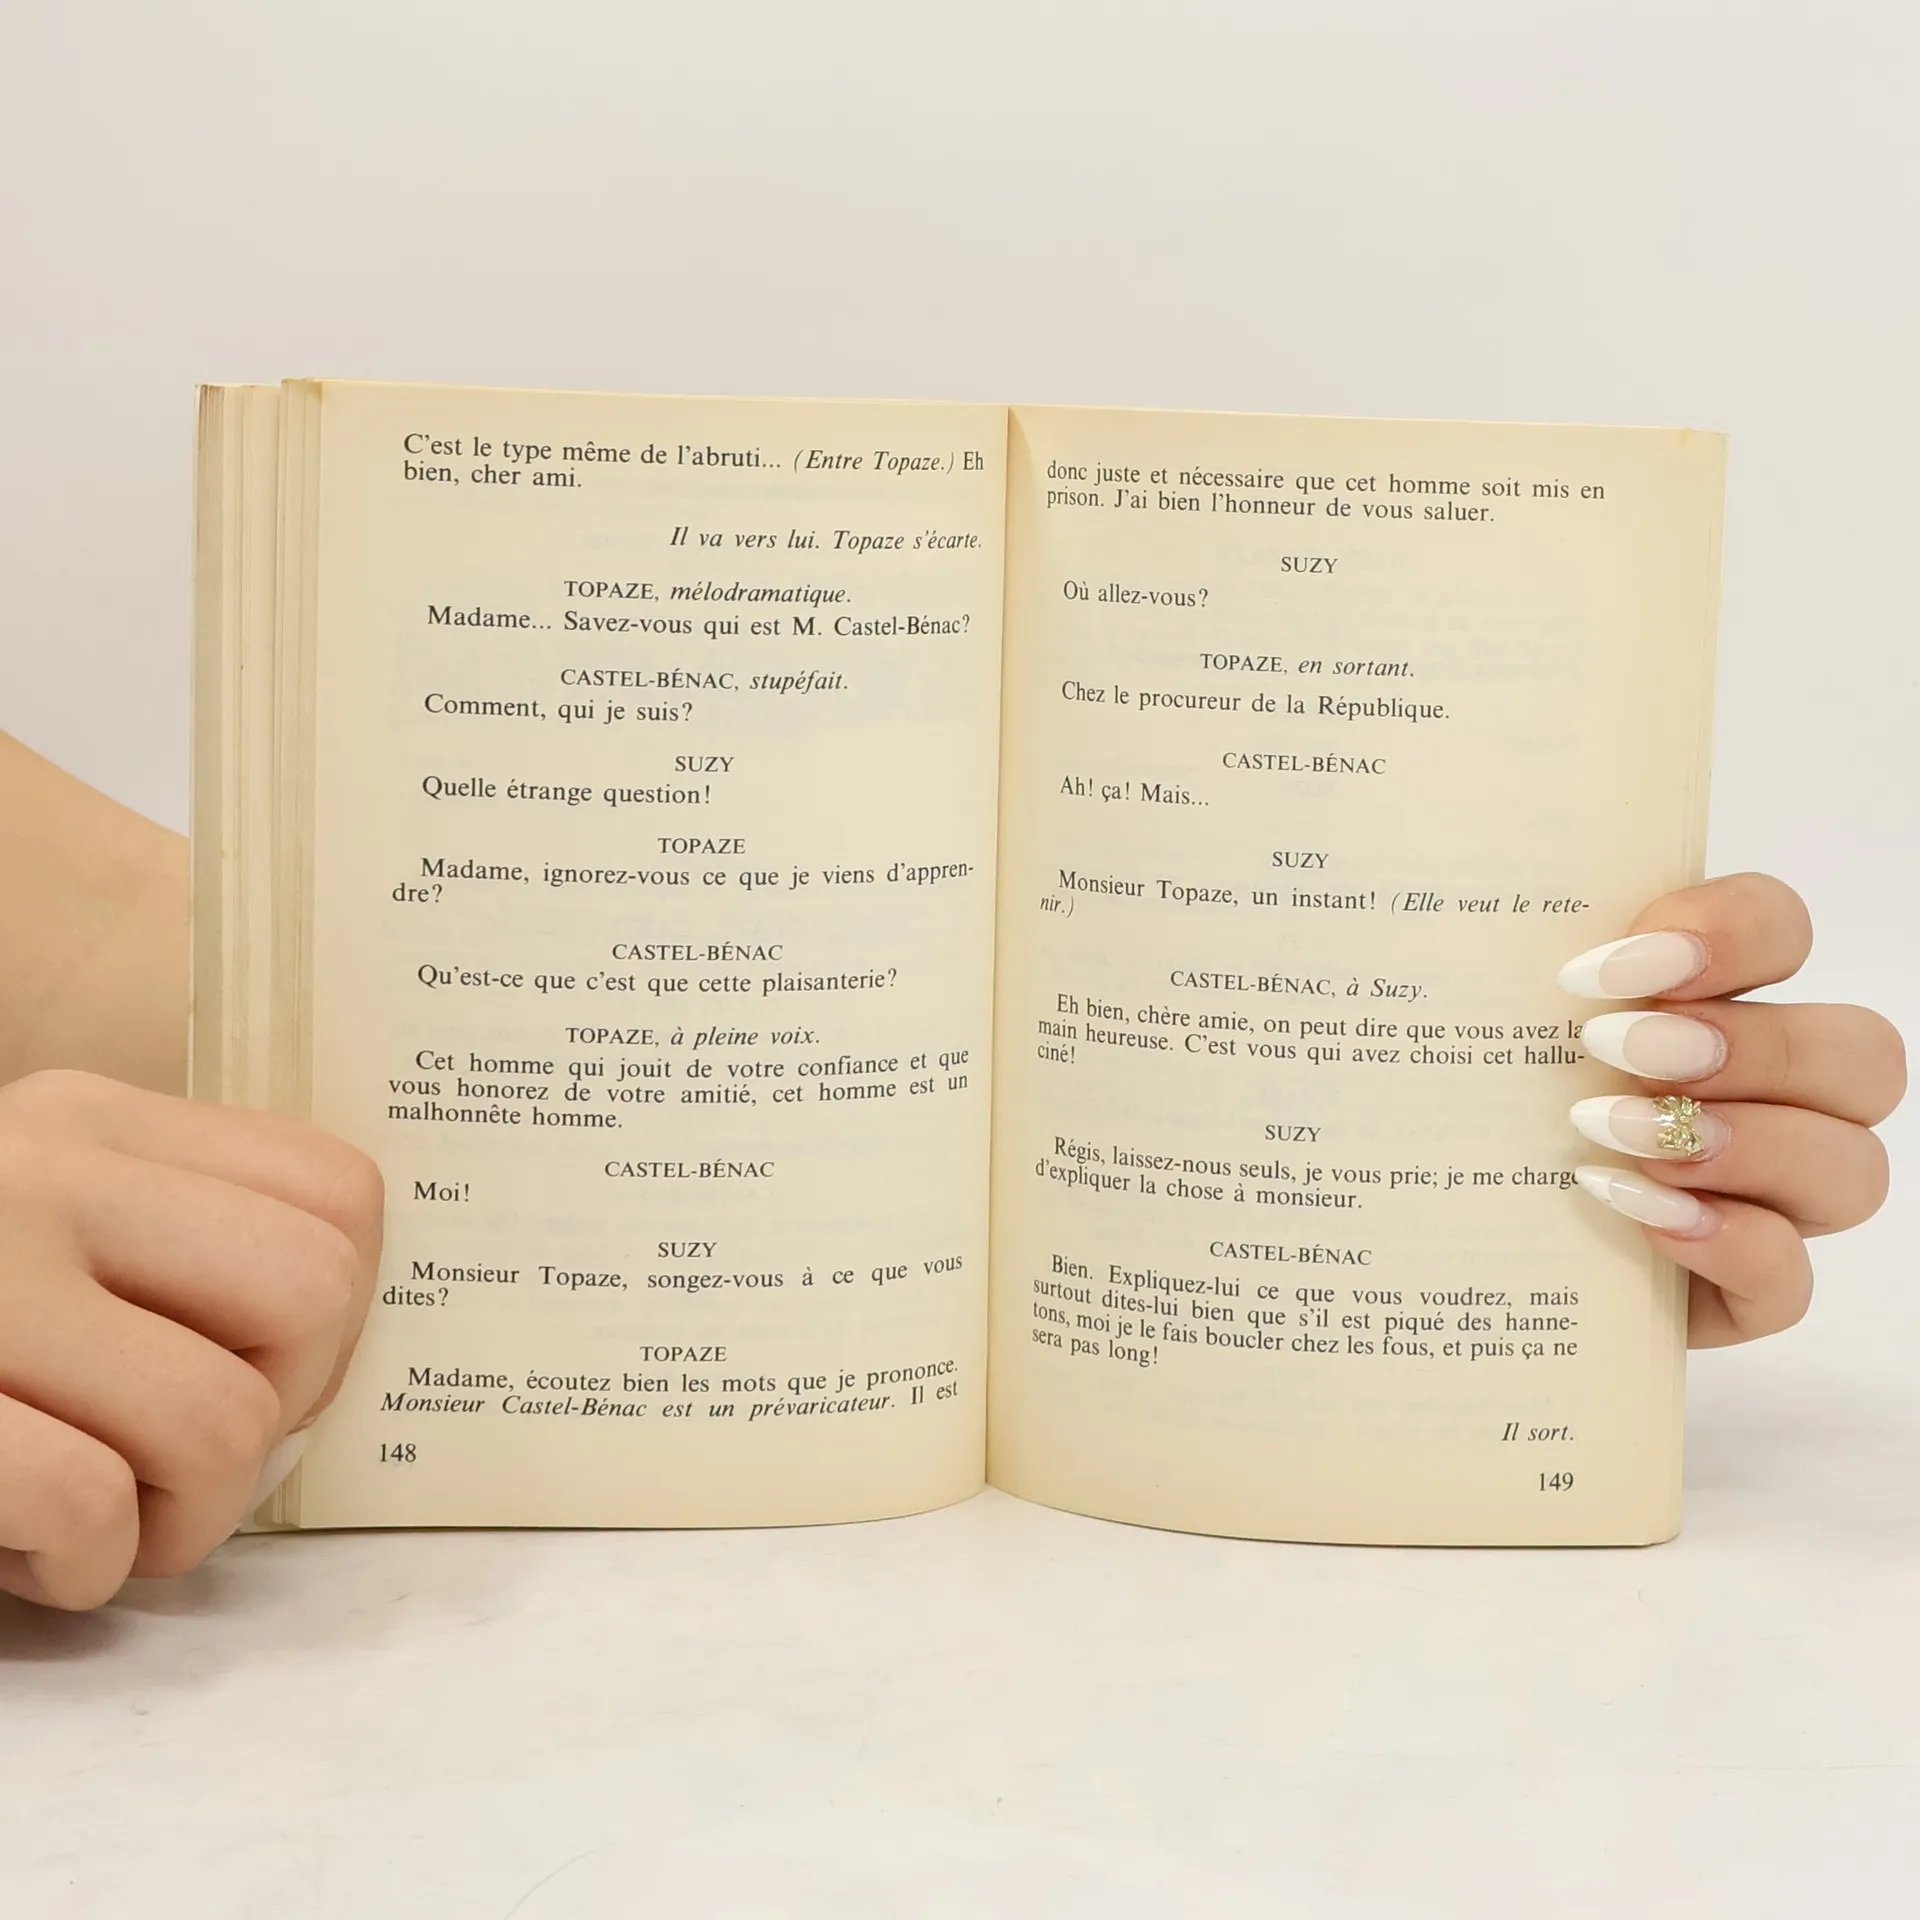 C'est le type même de l'abruti... (Entre Topaze.) Eh
bien, cher ami.
Il va vers lui. Topaze s'écarte.
TOPAZE, mélodramatique.
Madame... Savez-vous qui est M. Castel-Bénac?
CASTEL-BÉNAC, stupéfait.
Comment, qui je suis?
SUZY
Quelle étrange question!
TOPAZE
Madame, ignorez-vous ce que je viens d'appren-
dre?
CASTEL-BÉNAC
Qu'est-ce que c'est que cette plaisanterie?
TOPAZE, à pleine voix.
Cet homme qui jouit de votre confiance et que
vous honorez de votre amitié, cet homme est un
malhonnête homme.
CASTEL-BÉNAC
Moi!
SUZY
Monsieur Topaze, songez-vous à ce que vous
dites?
TOPAZE
Madame, écoutez bien les mots que je prononce.
Monsieur Castel-Bénac est un prévaricateur. Il est
148
donc juste et nécessaire que cet homme soit mis en
prison. J'ai bien l'honneur de vous saluer.
SUZY
Où allez-vous?
TOPAZE, en sortant.
Chez le procureur de la République.
CASTEL-BÉNAC
Ah! ça! Mais...
SUZY
Monsieur Topaze, un instant! (Elle veut le rete-
nir.)
CASTEL-BÉNAC, à Suzy.
Eh bien, chère amie, on peut dire que vous avez la
main heureuse. C'est vous qui avez choisi cet hallu-
ciné!
SUZY
Régis, laissez-nous seuls, je vous prie; je me charge
d'expliquer la chose à monsieur.
CASTEL-BÉNAC
Bien. Expliquez-lui ce que vous voudrez, mais
surtout dites-lui bien que s'il est piqué des hanne-
tons, moi je le fais boucler chez les fous, et puis ça ne
sera pas long!
Il sort.
149